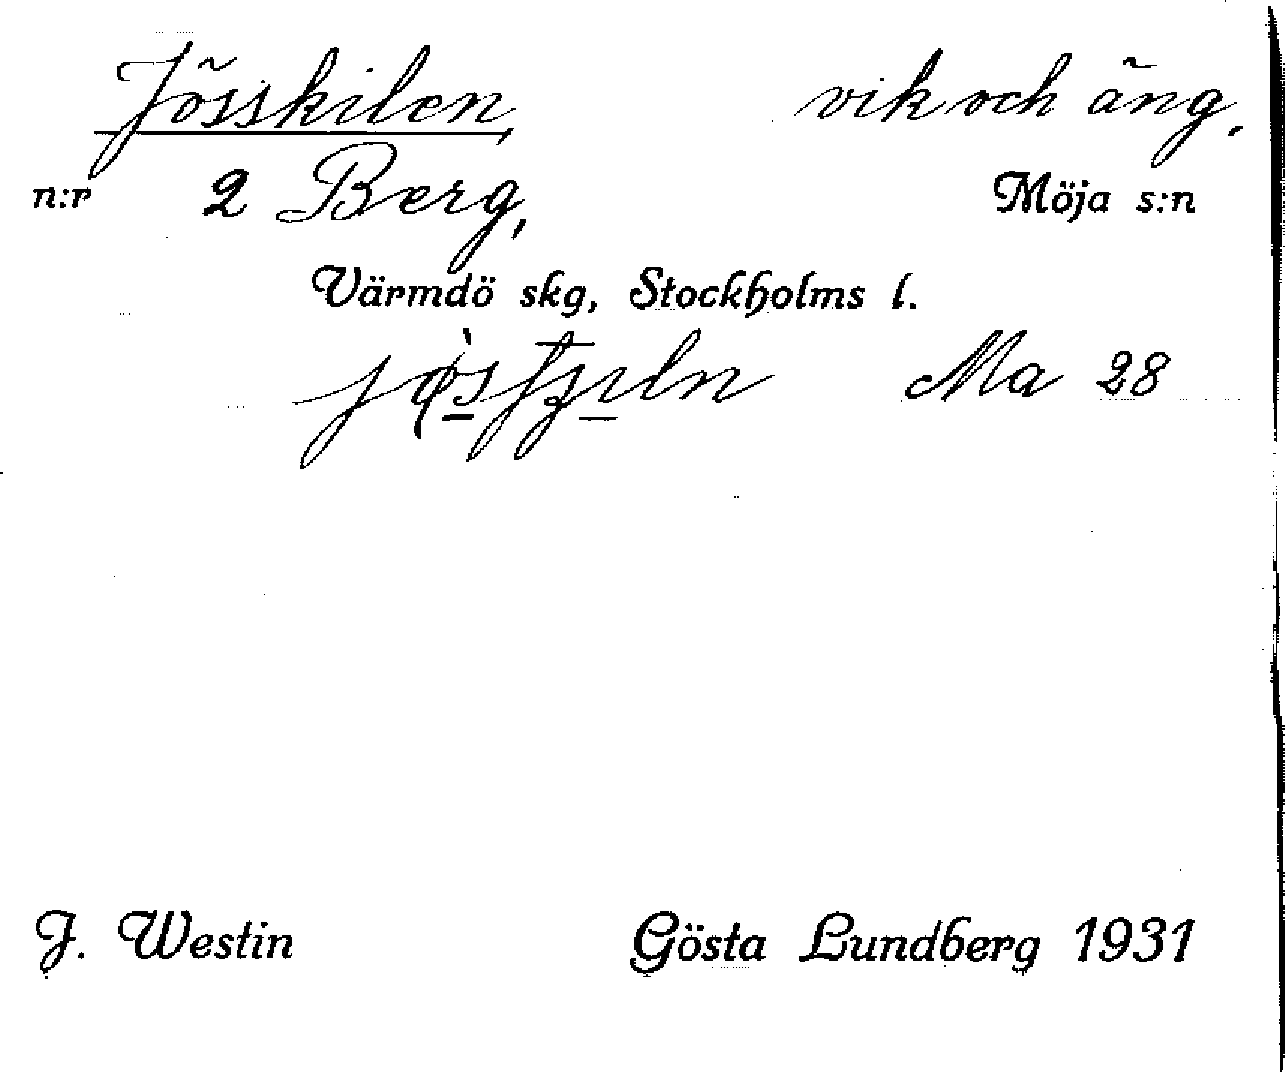 Jösskilen, vik och äng.
n:r 2 Berg, Möja s:n
Värmdö skg, Stockholms l.
Ma 28
J. Westin Gösta Lundberg 1931